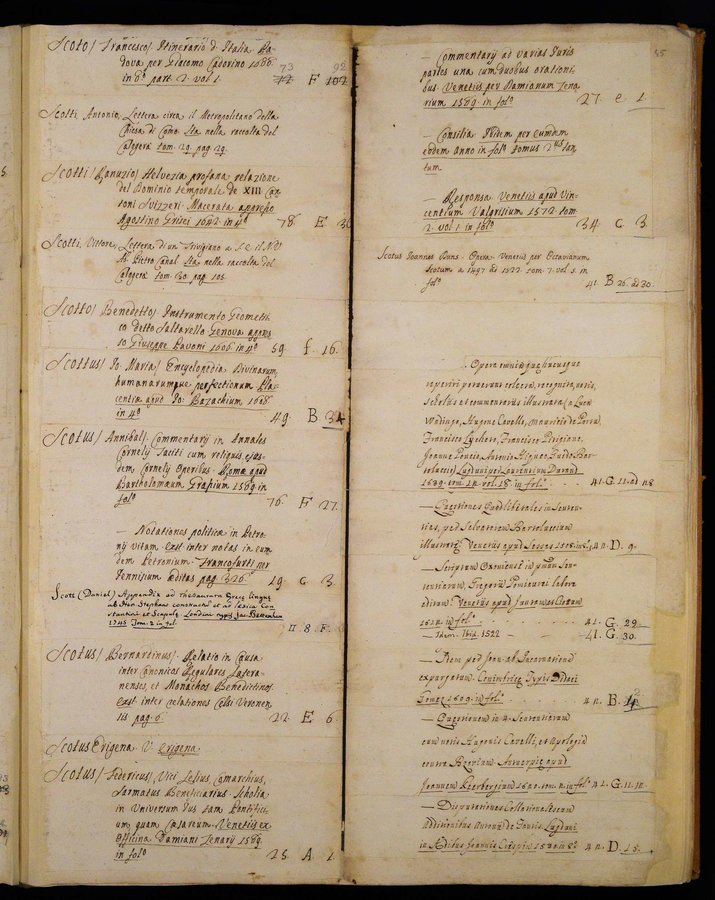 Scoto/ Francesco/ Itinerario d'Italia Pa-
dova per Giacomo Cadorino 1686.
73 92
in 8º part. 2. vol 1. 72 F 102
Scotti, Antonio, Lettera circa il Metropolitano della
Chiesa di Como. Sta nella raccolta del
Calogerà tom. 29. pag. 29.
Scotti/ Ranuzio/ Helvezia profana relazione
del Dominio temporale de XIII Can-
toni Svizzeri. Macerata appresso
Agostino Grisei 1642. in 4º 78. E 30
Scotti, Vittore, Lettera di un Trivigiano a S. E. il N. V.
Pietro Canal Sta nella raccolta del
Calogerà tom. 30. pag. 105.
Scotto/ Benedetto/ Instrumento Geometri-
co detto Saltarello Genova appres-
so Giuseppe Pavoni 1606. in 4º 59. f. 16.
Scottus/ Jo. Maria/ Encyclopedia Divinarum,
humanarumque perfectionum Pla-
centiæ apud Jo. Bazachium 1608
in 4º 49. B 34
Scotus/ Annibal/ Commentarij in Annales
Cornelij Taciti cum reliquis ejus-
dem Cornelij Operibus. Romæ apud
Bartholomæum Grassium 1589. in
folº 76. F 27.
— Notationes politicæ in Petro-
nij vitam. Exst. inter notas in eun-
dem Petronium. Francofurti per
Jennisium Æditas pag. 326. 19. C 3.
Scott (Daniel) Appendix ad thesaurum Græce linguæ
ab Hen. Stephano constructu et ad lexica Con-
stantini et Scapulæ Londini typis Jac. Bettenham
1745 Tom. 2 in fol. II. 8. F.
Scotus/ Bernartinus/ Relatio in Causa
inter Canonicos Regulares Latera-
nenses, et Monachos Benedictinos.
Exst. inter relationes Celsi Veronen-
sis pag. 6. 22. E 6.
Scotus Erigena V. Erigena
Scotus/ Federicus/ Vici Lelius Comarchius,
Sarmatus Beneficiarius. Scholia
in Universum Jus tam Pontifici-
um, quam Cæsareum. Venetiis ex
Officina Damiani Zenarij 1589.
in folº 25. A 1.
45
— Commentarij ad varias Juris
partes una cum duobus orationi-
bus Venetiis per Damianum Zena-
rium 1589. in folº 27. e 1.
— Consilia Itidem per eumdem
eodem Anno in folº tomus 2us tan-
tum.
— Responsa Venetiis apud Vin-
centium Valgrisium 1572. tom.
2. vol 1. in folº 34. C. 3.
Scotus Joannes Duns. Opera. Venetiis per Octavianum
Scotum a 1497 ad 1522. tom. 7. vol. 5. in
folº 41. B 26. ad 30.
. Opera omnia quæ hucusque
reperiri potuerunt collecta, recognita, notis,
Scholiis et commentariis illustrata (a Luca
Wadingo, Hugone Cavello, Mauritio de Portu,
Francisco Lycheto, Francisco Pitigiano,
Joanne Poncio, Antonio Hiqueo,
Lugduni apud Laurentium Durand
1639. tom. 12. vol. 18. in folº. 41. G. 11. ad 28
— Questiones Quodlibetales in Senten-
tias, per Salvatorem Bartoluccium
illustratæ. Venetiis apud Sessas 1508. in 8º 42. D. 9.
— Scriptum Oxoniense in pmum Sen-
tentiarum, Gregorii labore
editum. Venetiis apud Juntas
in folº. 41. G. 29.
— Idem. Ibid. 1522 — 41. G. 30.
— Item
expurgatum. Typis Didaci
Gomez 1609. in folº. 42. B. 12
— Questiones in 4. Sententiarum
cum notis Hugonis Cavelli, et Apologia
contra Bzovium. Antverpiæ apud
Joannem Keerbergium 1620. tom. 2. in folº 41. G. 11. 12.
— Disputationes Collationales cum
Additionibus Antonii de Fantis. Lugduni
in Ædibus Joannis Crespin 1530 in 8º 42. D. 15.